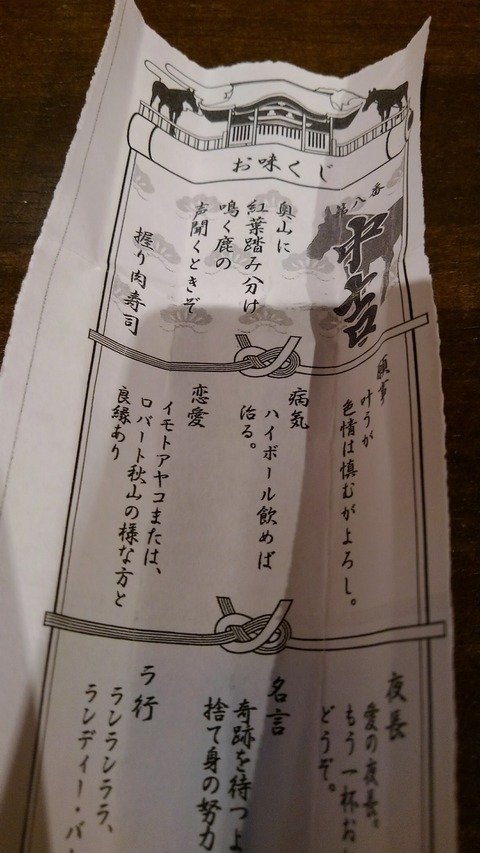 お味くじ
第八番
中吉
奥山に
紅葉踏み分け
鳴く鹿の
声聞くときぞ
握り肉寿司
願事
叶うが
色情は慎むがよろし。
病気
ハイボール飲めば
治る。
恋愛
イモトアヤコまたは、
ロバート秋山の様な方と
良縁あり
夜長
愛の夜長。
もう一杯お
どうぞ。
名言
奇跡を待つよ
捨て身の努力
ラ行
ランランララ、
ランディー・バ